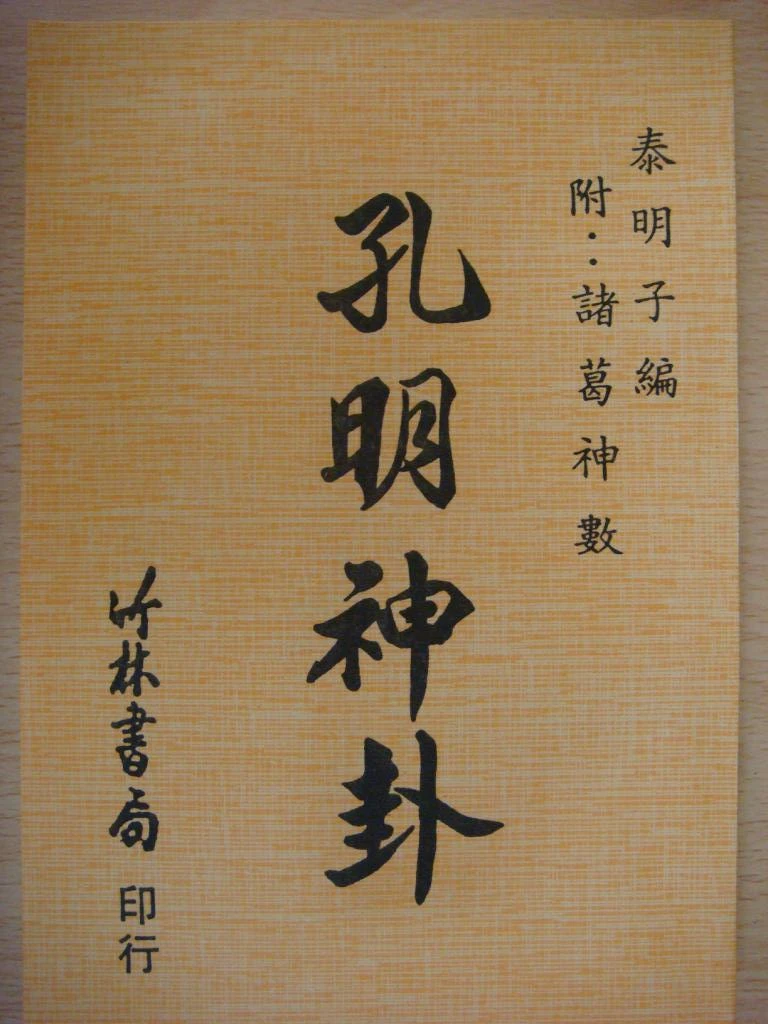 泰明子編
附：諸葛神數
孔明神卦
竹林書局 印行